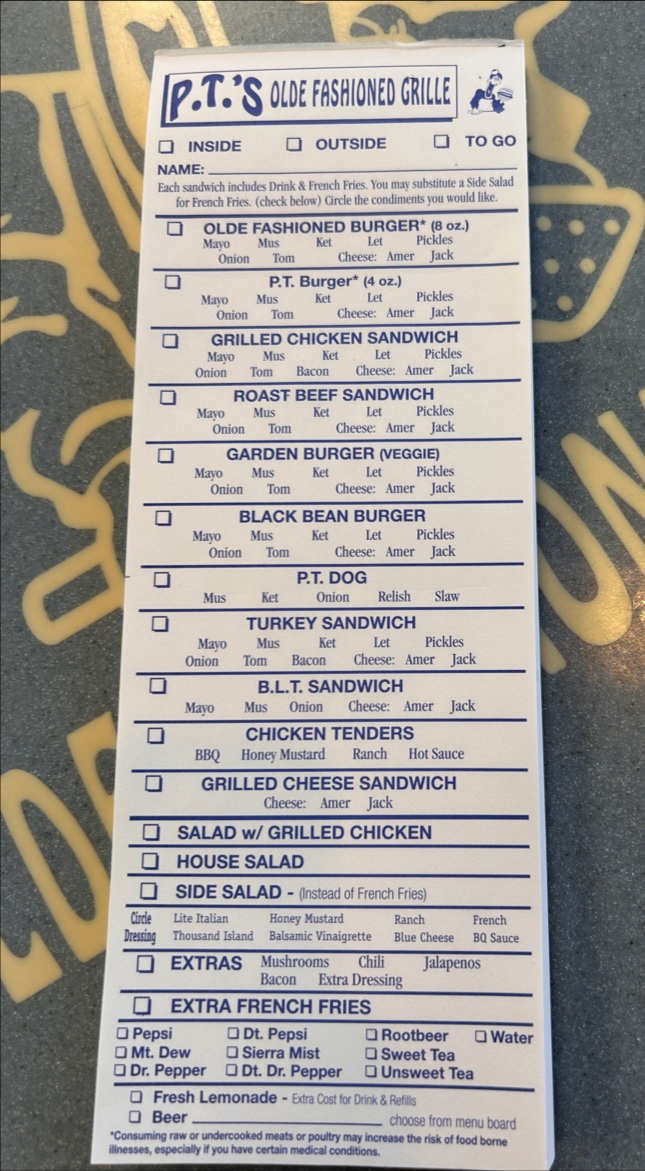 P.T.'S OLDE FASHIONED GRILLE
☐ INSIDE ☐ OUTSIDE ☐ TO GO
NAME:
Each sandwich includes Drink & French Fries. You may substitute a Side Salad
for French Fries. (check below) Circle the condiments you would like.
☐ OLDE FASHIONED BURGER* (8 oz.)
Mayo Mus Ket Let Pickles
Onion Tom Cheese: Amer Jack
☐ P.T. Burger* (4 oz.)
Mayo Mus Ket Let Pickles
Onion Tom Cheese: Amer Jack
☐ GRILLED CHICKEN SANDWICH
Mayo Mus Ket Let Pickles
Onion Tom Bacon Cheese: Amer Jack
☐ ROAST BEEF SANDWICH
Mayo Mus Ket Let Pickles
Onion Tom Cheese: Amer Jack
☐ GARDEN BURGER (VEGGIE)
Mayo Mus Ket Let Pickles
Onion Tom Cheese: Amer Jack
☐ BLACK BEAN BURGER
Mayo Mus Ket Let Pickles
Onion Tom Cheese: Amer Jack
☐ P.T. DOG
Mus Ket Onion Relish Slaw
☐ TURKEY SANDWICH
Mayo Mus Ket Let Pickles
Onion Tom Bacon Cheese: Amer Jack
☐ B.L.T. SANDWICH
Mayo Mus Onion Cheese: Amer Jack
☐ CHICKEN TENDERS
BBQ Honey Mustard Ranch Hot Sauce
☐ GRILLED CHEESE SANDWICH
Cheese: Amer Jack
☐ SALAD w/ GRILLED CHICKEN
☐ HOUSE SALAD
☐ SIDE SALAD - (Instead of French Fries)
Circle Lite Italian Honey Mustard Ranch French
Dressing Thousand Island Balsamic Vinaigrette Blue Cheese BQ Sauce
☐ EXTRAS Mushrooms Chili Jalapenos
Bacon Extra Dressing
☐ EXTRA FRENCH FRIES
☐ Pepsi ☐ Dt. Pepsi ☐ Rootbeer ☐ Water
☐ Mt. Dew ☐ Sierra Mist ☐ Sweet Tea
☐ Dr. Pepper ☐ Dt. Dr. Pepper ☐ Unsweet Tea
☐ Fresh Lemonade - Extra Cost for Drink & Refills
☐ Beer choose from menu board
*Consuming raw or undercooked meats or poultry may increase the risk of food borne
illnesses, especially if you have certain medical conditions.